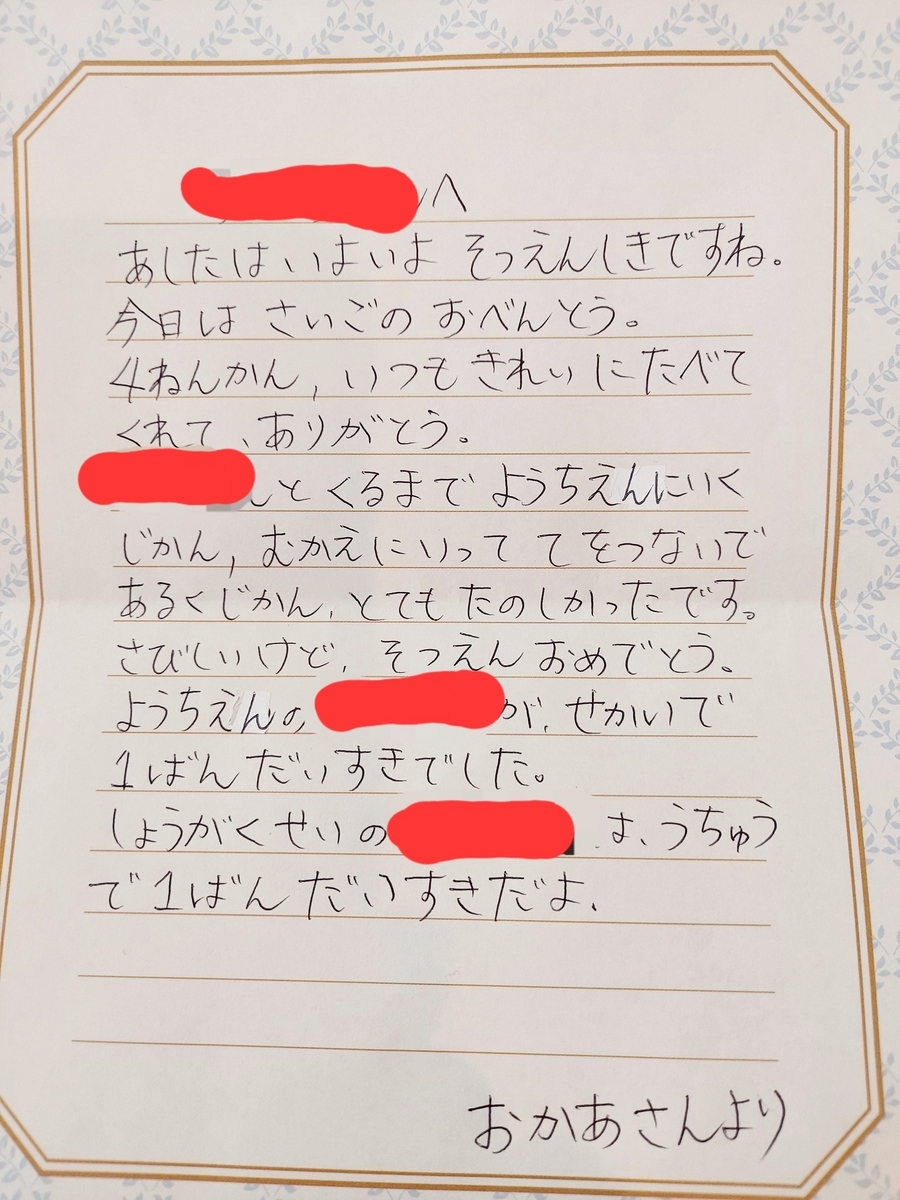 へ
あしたは いよいよ そつえんしきですね。
今日は さいごの おべんとう。
4ねんかん、いつも きれいに たべて
くれて、ありがとう。
んと くるまで ようちえんにいく
じかん、むかえにいって てをつないで
あるくじかん、とても たのしかったです。
さびしいけど、そつえん おめでとう。
ようちえんの が、せかいで
1ばん だいすきでした。
しょうがくせいの は、うちゅう
で1ばん だいすきだよ、
おかあさんより